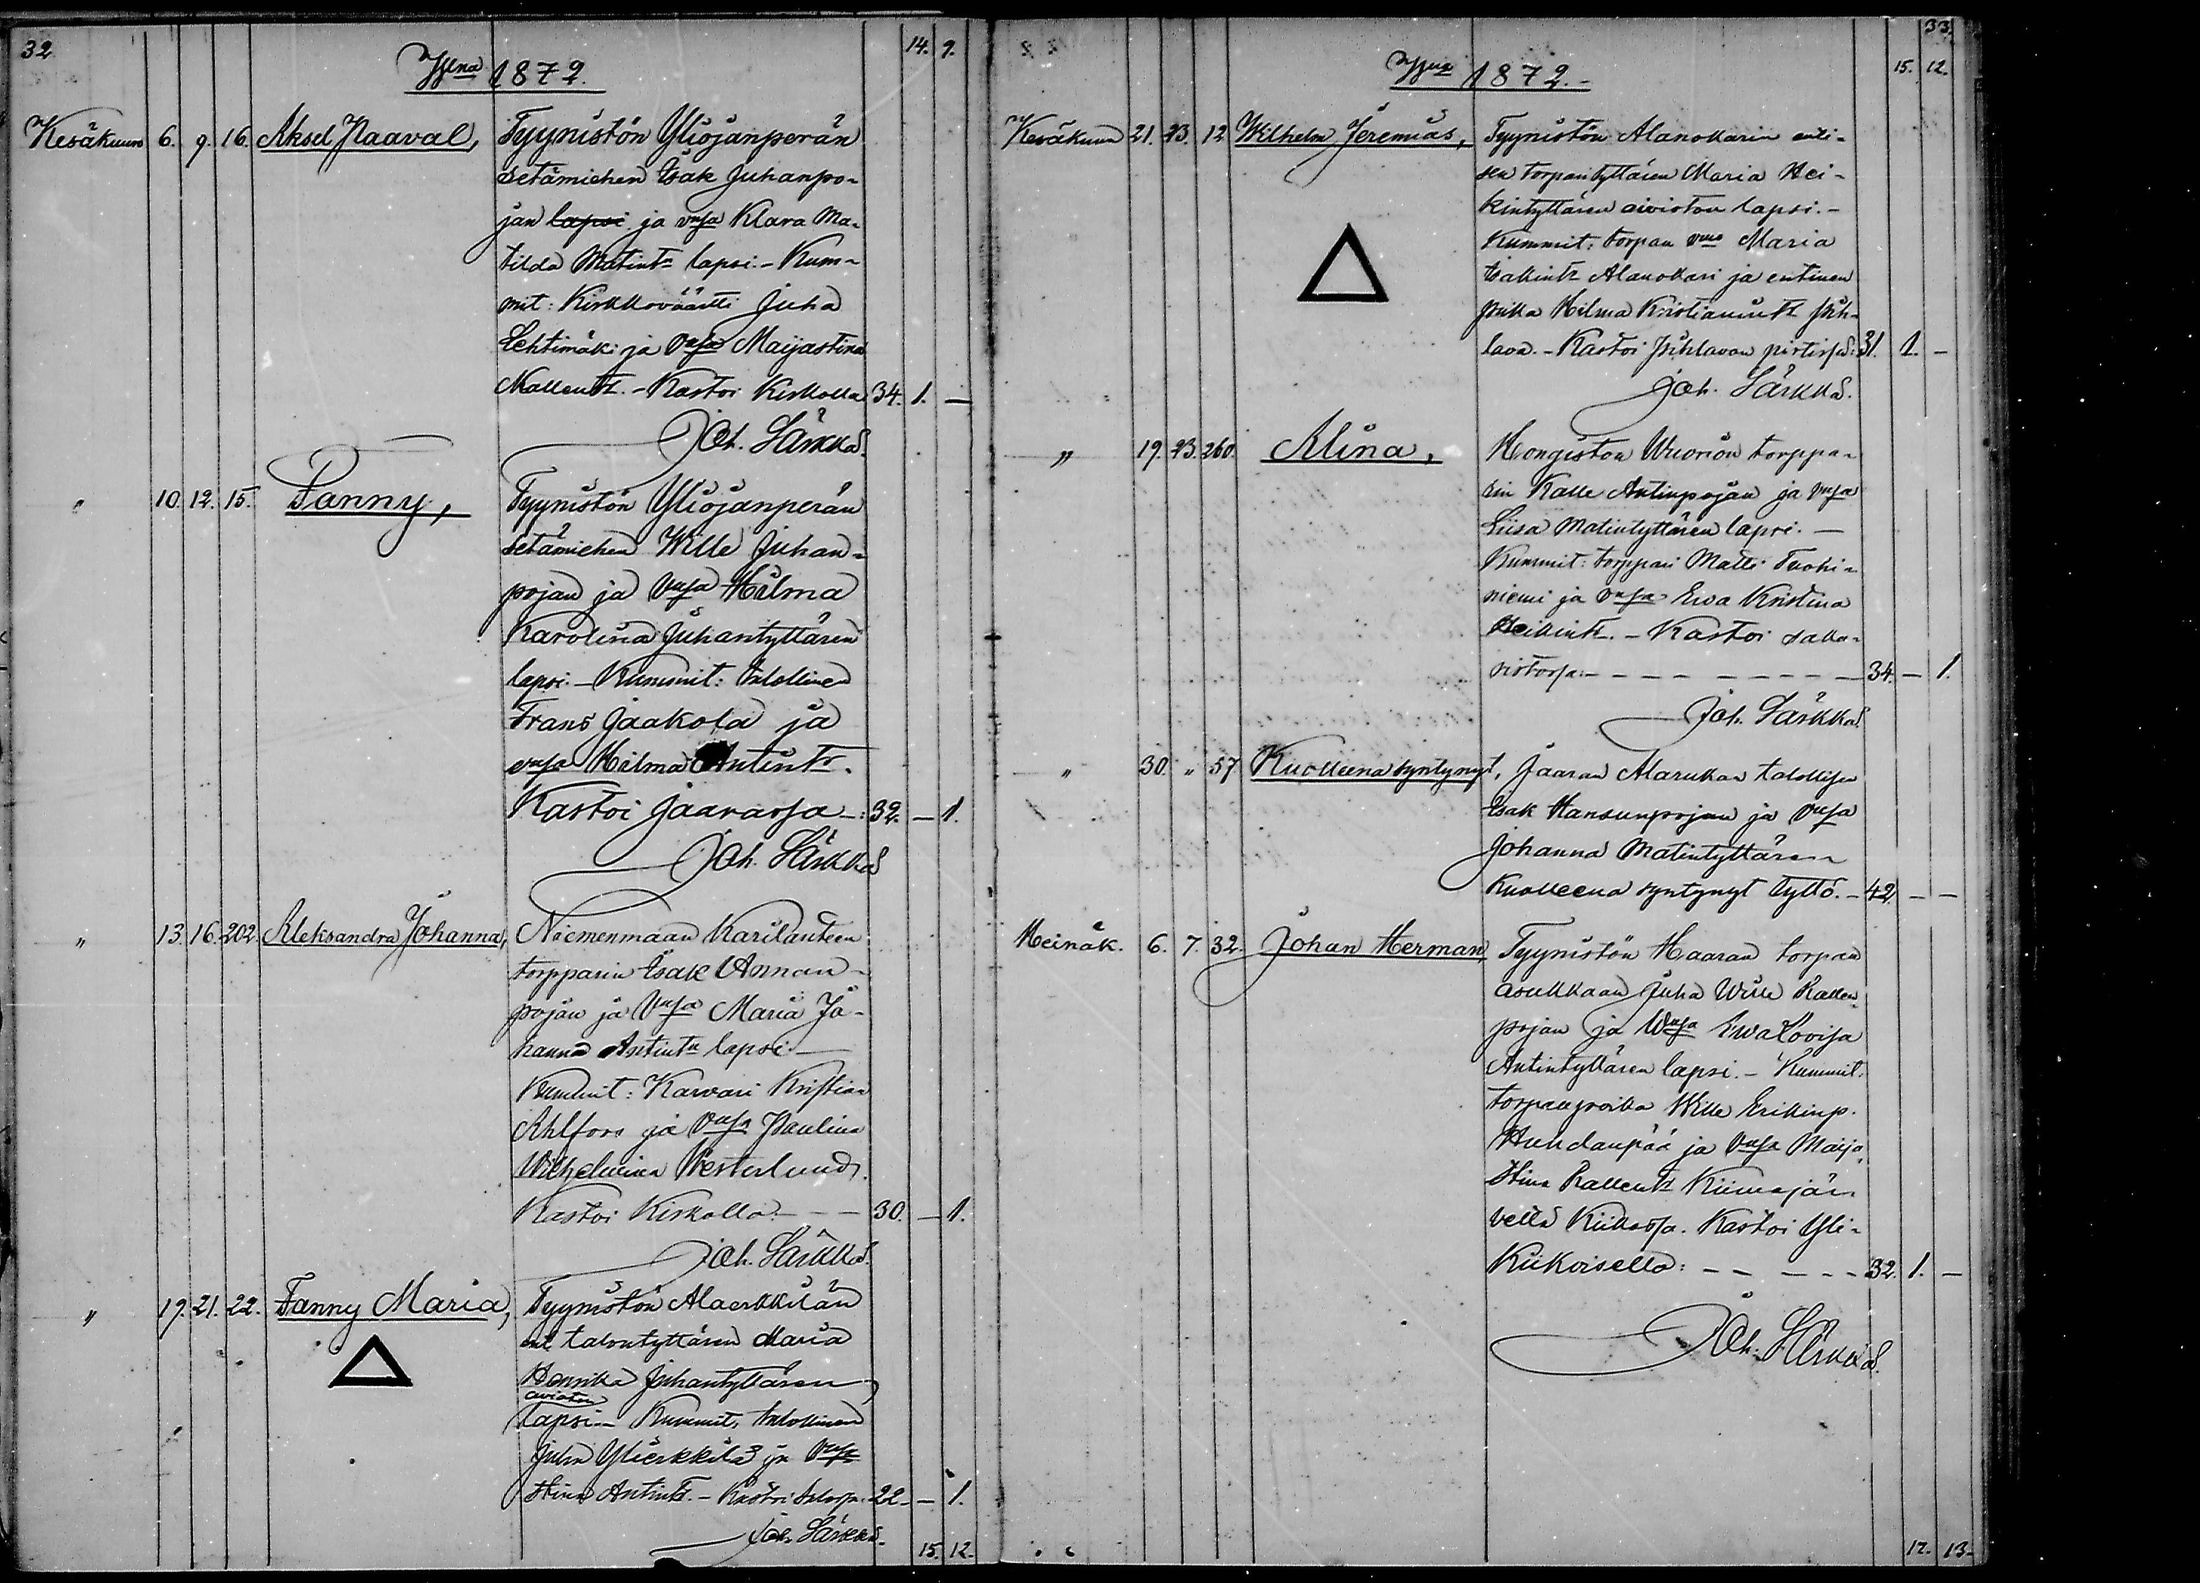 32
14. 9.
1872.
Kesäkuun 6. 9. 16. Aksel Paaval, Tyynistön Yliojanperän
setämiehen Isak Juhanpo-
jan lapsi ja vmsa Klara Ma-
tilda Matintr lapsi. - Kum-
mit: Kirkkoväärti Juha
Lehtimäki ja vmsa Maijastina
Kallentr. - Kastoi Kirkolla 34. 1. -
Joh. Särkkä.
" 10. 12. 15. Fanny, Tyynistön Yliojanperän
setämiehen Wille Juhan-
pojan ja vmsa Hilma
Karolina Juhantyttären
lapsi. - Kummit: talollinen
Frans Jaakola ja
vmsa Hilma Antintr.
Kastoi Jaarassa -: 32. - 1.
Joh. Särkkä
" 13. 16. 202. Aleksandra Johanna, Niemenmaan Karilanteen
torpparin Isak Annan-
pojan ja vmsa Maria Jo-
hanna Antintr lapsi -
Kummit: Karvari Kristian
Ahlfors ja vmsa Paulina
Wilhelmina Westerlund.
Kastoi Kirkolla. - - - 30. - 1.
Joh. Särkkä.
" 19. 21. 22. Fanny Maria, Tyynistön Alaerkkilän
ent talontyttären Maria
Henrika Juhantyttären
avioton
lapsi. - Kummit, talollinen
Juha Ylierkkilä ja vmsa
Stina Antintr. - Kastoi talossa: 22 - - 1.
Joh. Särkkä.
15. 12.
33.
15. 12.
1872. -
Kesäkuun 21. 23. 12 Wilhelm Jeremias, Tyynistön Alanokarin enti-
sen torparityttären Maria Hei-
kintyttären avioton lapsi. -
Kummit: torpan vmo Maria
Isakintr Alanokari ja entinen
piika Hilma Kristianintr Pih-
lava. - Kastoi Pihlavan pirtissä: 31. 1. -
Joh. Särkkä.
" 19. 23. 260. Alina, Hongiston Wuorion torppa-
rin Kalle Antinpojan ja vmsa
Liisa Matintyttären lapsi. -
Kummit: torppari Matti Tuohi-
niemi ja vmsa Ewa Kristina
Heikintr. - Kastoi saka-
ristossa: - - - - - - - - 34. - 1.
Joh. Särkkä.
" 30. " 57 Kuolleena syntynyt, Jaaran Alarukan talollisen
Isak Hansunpojan ja vmsa
Johanna Matintyttären
Kuolleena syntynyt tyttö. - 42. - -
Heinäk. 6. 7. 32. Johan Herman, Tyynistön Haaran torpan
asukkaan Juha Wille Kallen-
pojan ja Wmsa Ewa Lovisa
Antintyttären lapsi. - Kummit:
torpanpoika Wille Erikinp.
Huhdanpää ja vmsa Maija
Stina Kallentr Kiimajär-
vellä Kiikassa. Kastoi Yli-
Kiikoisella: - - - - - 32. 1. -
Joh. Särkkä.
17. 13.